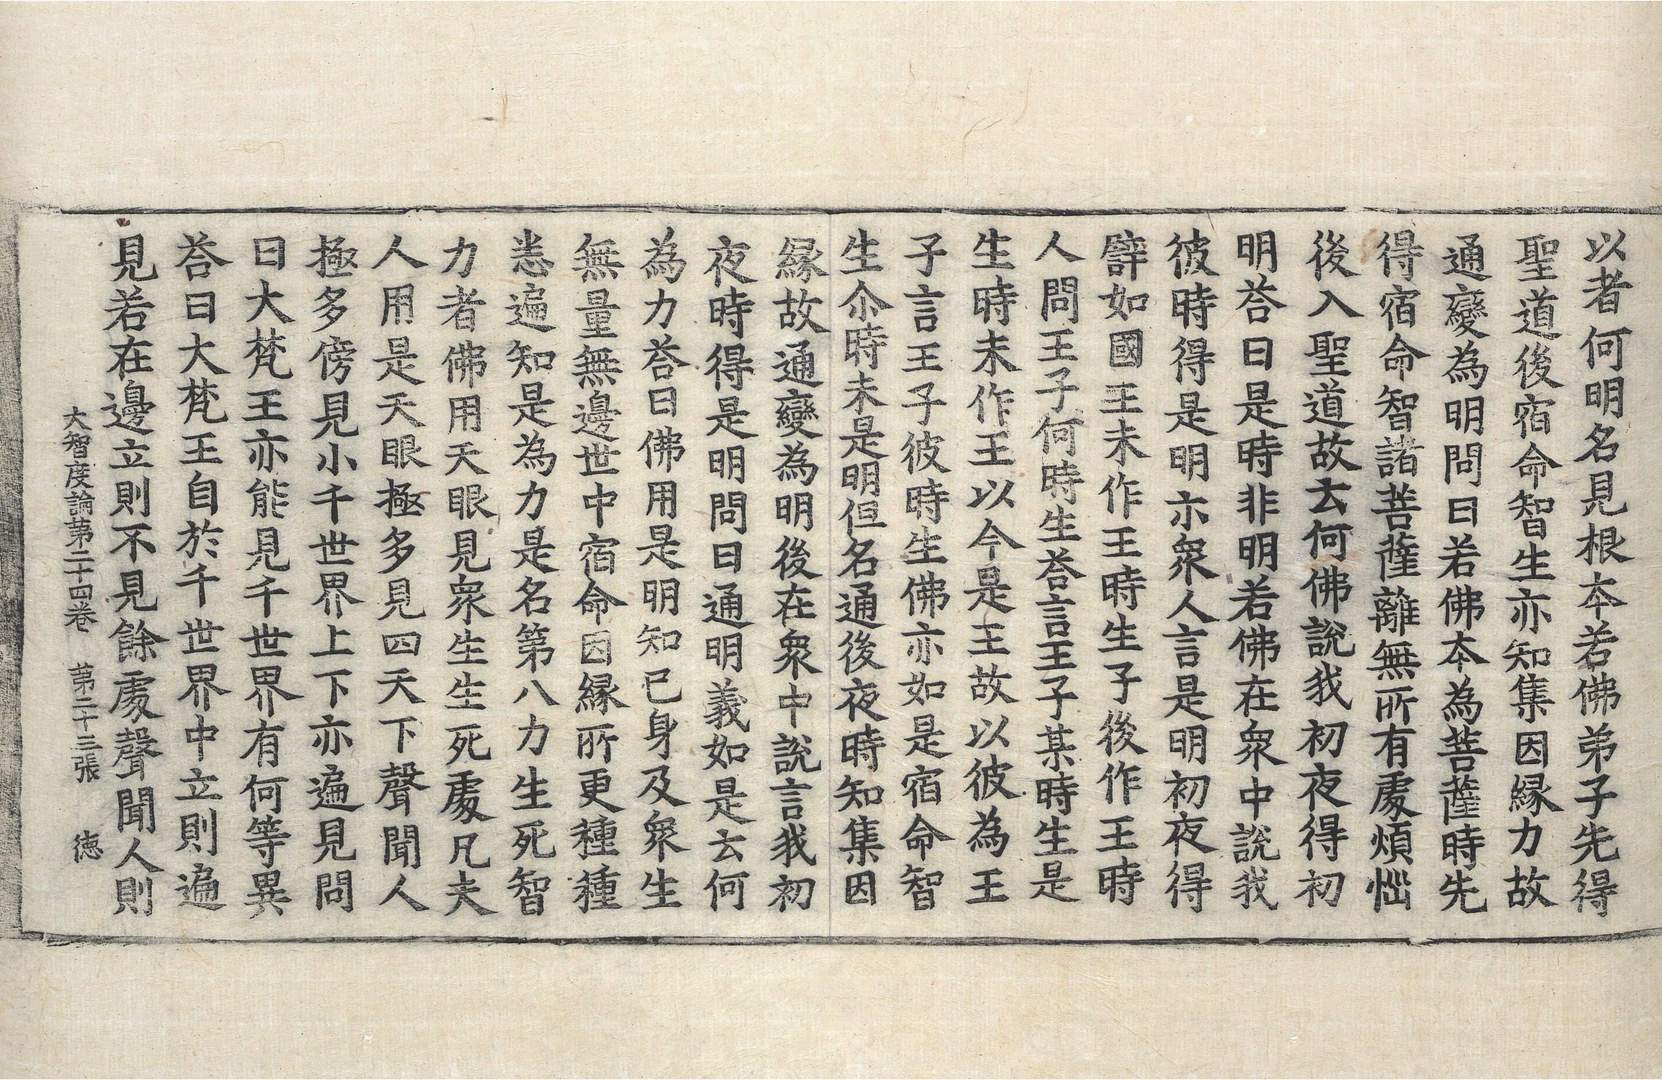 以者何明名見根本若佛弟子先得
聖道後宿命智生亦知集因縁力故
通變為明問曰若佛本為菩薩時先
得宿命智諸菩薩離無所有處煩惱
後入聖道故云何佛說我初夜得初
明荅曰是時非明若佛在衆中說我
彼時得是明示衆人言是明初夜得
譬如國王未作王時生子後作王時
人問王子何時生荅言王子某時生是
生時未作王以今是王故以彼為王
子言王子彼時生佛亦如是宿命智
生尒時未是明但名通後夜時知集因
縁故通變為明後在衆中說言我初
夜時得是明問曰通明義如是云何
為力荅曰佛用是明知已身及衆生
無量無邊世中宿命因縁所更種種
悉遍知是為力是名第八力生死智
力者佛用天眼見衆生生死處凡夫
人用是天眼極多見四天下聲聞人
極多傍見小千世界上下亦遍見問
曰大梵王亦能見千世界有何等異
荅曰大梵王自於千世界中立則遍
見若在邊立則不見餘處聲聞人則
大智度論第二十四卷 第二十三張 德